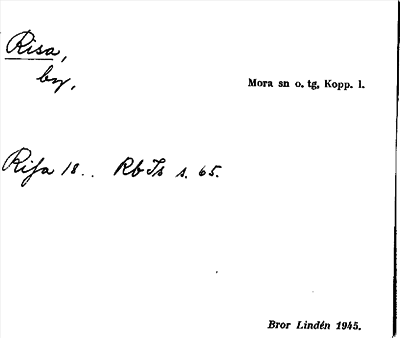 Risa,
by,
Mora sn o. tg, Kopp. l.
Rifa 18.. Rb Ts s. 65.
Bror Lindén 1945.